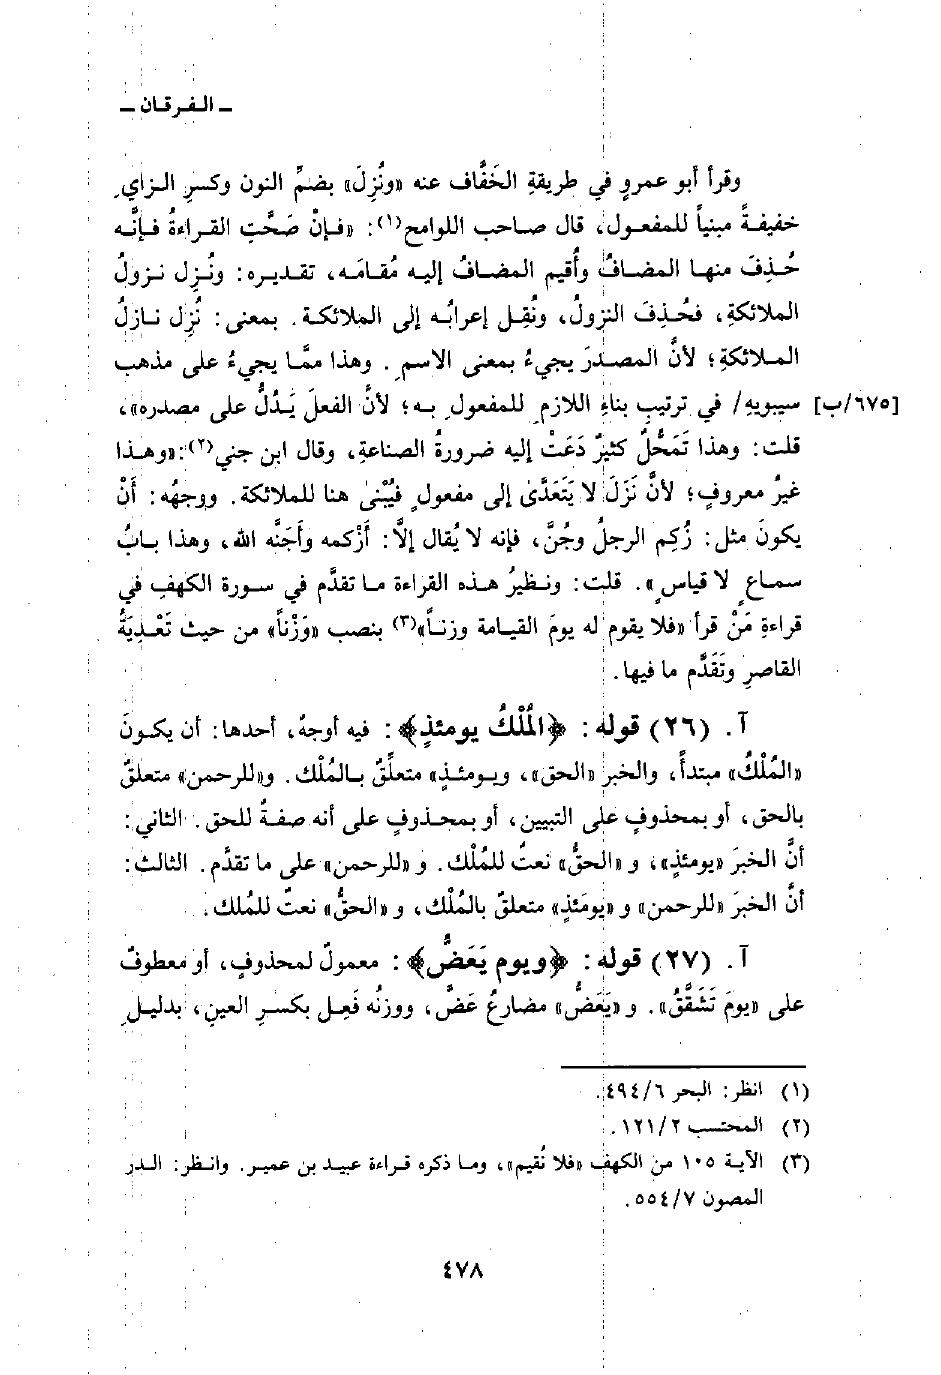 ـ الفرقان ـ
وقرأ أبو عمروٍ في طريقةِ الخَفَّاف عنه «ونُزِلَ» بضمِّ النون وكسرِ الزاي
خفيفةً مبنياً للمفعول، قال صاحب اللوامح(١): «فإنْ صَحَّتِ القراءةُ فإنَّه
حُذِفَ منها المضافُ وأُقيم المضافُ إليه مُقامَه، تقديره: ونُزِل نزولُ
الملائكةِ، فحُذِفَ النزولُ، ونُقِل إعرابُه إلى الملائكة. بمعنى: نُزِل نازلُ
الملائكةِ؛ لأنَّ المصدرَ يجيءُ بمعنى الاسمِ. وهذا ممَّا يجيءُ على مذهب
[٦٧٥/ب] سيبويهِ/ في ترتيبِ بناءِ اللازمِ للمفعولِ به؛ لأنَّ الفعلَ يَدُلُّ على مصدرِه»،
قلت: وهذا تَمَحُّلٌ كثيرٌ دَعَتْ إليه ضرورةُ الصناعةِ، وقال ابن جني(٢): «وهذا
غيرُ معروفٍ؛ لأنَّ نَزَلَ لا يَتَعَدَّىٰ إلى مفعولٍ فيُبْنىٰ هنا للملائكة. ووجهُه: أَنْ
يكونَ مثل: زُكِم الرجلُ وجُنَّ، فإنه لا يُقال إلاَّ: أَزْكمه وأَجَنَّه الله، وهذا بابُ
سماعٍ لا قياسٍ». قلت: ونظيرُ هذه القراءة ما تقدَّم في سورة الكهف في
قراءةِ مَنْ قرأ «فلا يقوم له يومَ القيامة وزناً»(٣) بنصب «وَزْناً» من حيث تَعْدِيَةُ
القاصرِ وتَقَدَّم ما فيها.
آ. (٢٦) قوله: ﴿المُلْكُ يومئذٍ﴾: فيه أوجهٌ، أحدها: أن يكونَ
«المُلْكُ» مبتدأً، والخبر «الحق»، ويومئذٍ» متعلِّقٌ بالمُلْك. و«للرحمن» متعلقٌ
بالحق، أو بمحذوفٍ على التبيين، أو بمحذوفٍ على أنه صفةٌ للحق. الثاني:
أنَّ الخبرَ «يومئذٍ»، و «الحقُّ» نعتٌ للمُلْك. و «للرحمن» على ما تقدَّم. الثالث:
أنَّ الخبرَ «للرحمن» و «يومَئذٍ» متعلقٌ بالمُلْك، و «الحقُّ» نعتٌ للمُلك.
آ. (٢٧) قوله: ﴿ويوم يَعَضُّ﴾: معمولٌ لمحذوفٍ، أو معطوفٌ
على «يومَ تَشَقَّقُ». و «يَعَضُّ» مضارعُ عَضَّ، ووزنُه فَعِل بكسرِ العينِ، بدليلِ
(١) انظر: البحر ٤٩٤/٦.
(٢) المحتسب ١٢١/٢.
(٣) الآية ١٠٥ من الكهف «فلا نُقيم»، وما ذكره قراءة عبيد بن عمير. وانظر: الدر
المصون ٥٥٤/٧.
٤٧٨